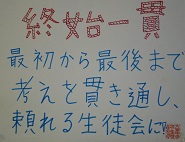 終始一貫
最初から最後まで
考えを貫き通し、
頼れる生徒会に!